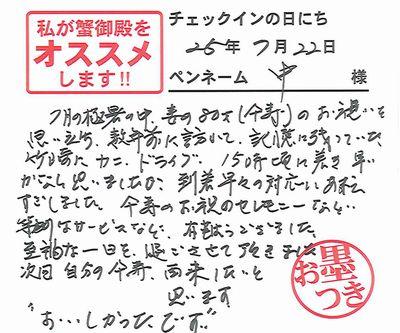 私が蟹御殿を
オススメ
します!!
チェックインの日にち
25年7月22日
ペンネーム 中 様
7月の極暑の中、妻の80才(傘寿)のお祝いを
思い立ち、数年前に訪れて、記憶に残っていた
カニ、ドライブ。15時頃に着き早い
かなと思いましたが、到着早々の対応に
すごしました。傘寿のお祝のセレモニーなど、
なサービスなど、有難うございました。
至福な一日を、過ごさせて頂きました
次回 自分の傘寿、再来したいと
思います
"お・・・しかったです"
お墨つき